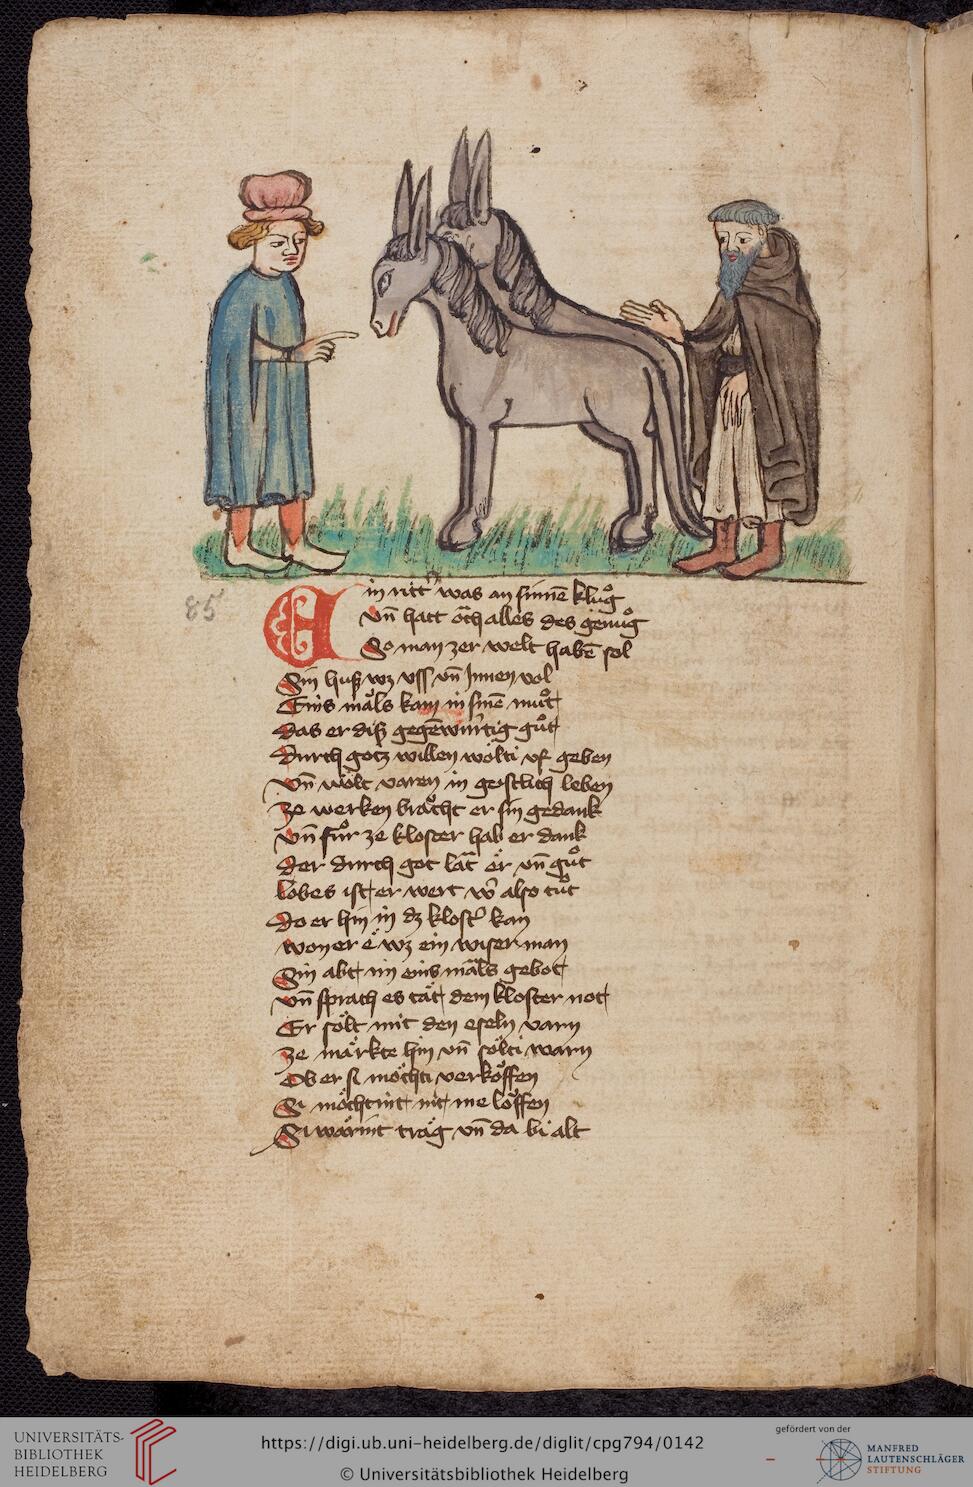 85
Ein ritter was an sinnē kluͦg
vn̄ hatt oͮch alles des genuͦg
So man zer welt habē sol
Sin huß wz vss vn̄ Jnnen vol
Eins maͧls kam in sinē muͦt
das er diß gegēwirtig guͦt
durch gotz willen woͤlti vf geben
vn̄ woͤlt varen in geistlich leben
ze werken braͧcht er sin gedank
vn̄ fuͦr ze kloster hab er dank
der durch got laͧt er vn̄ guͦt
lobes ist er wert wer also tuͦt
do er hin in dz kloster kan
won er e wz ein wiser man
Sin abt im eins maͧls gebot
vn̄ sprach es taͤt dem kloster not
Er soͤlt mit den eseln varn
ze maͤrkte hin vn̄ soͤlti warn
Ob er si moͤchti verkoͮffen
Si moͤchtint nit me loͮffen
Si waͤrint traͤg vn̄ da bi alt
UNIVERSITÄTS-
BIBLIOTHEK
HEIDELBERG
https://digi.ub.uni-heidelberg.de/diglit/cpg794/0142
© Universitätsbibliothek Heidelberg
gefördert von der
MANFRED
LAUTENSCHLÄGER
STIFTUNG